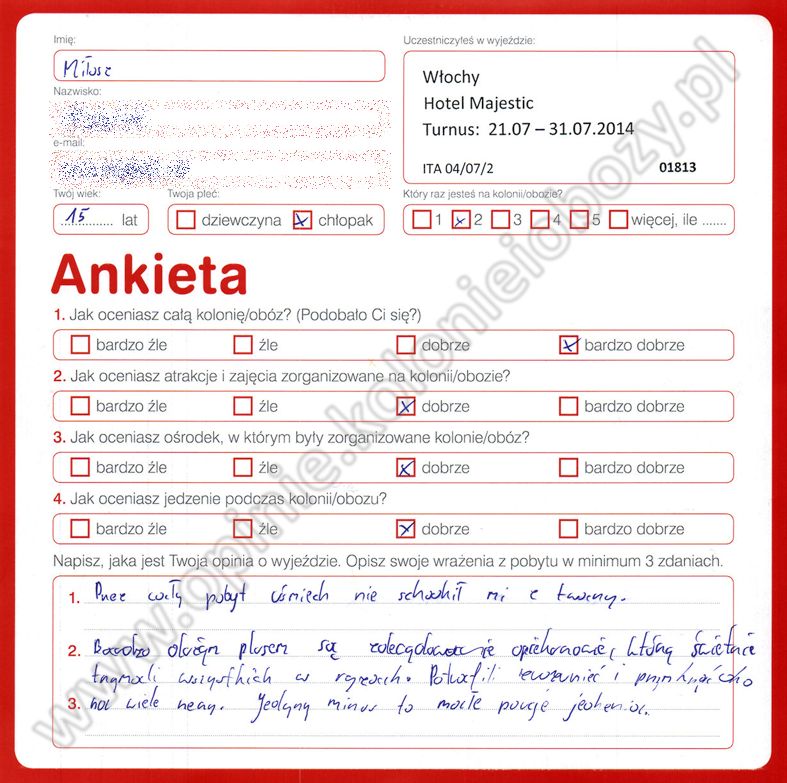 Imię:
Miłosz
Nazwisko:
e-mail:
Twój wiek:
15 lat
Twoja płeć:
dziewczyna chłopak
Uczestniczyłeś w wyjeździe:
Włochy
Hotel Majestic
Turnus: 21.07 – 31.07.2014
ITA 04/07/2 01813
Który raz jesteś na kolonii/obozie?
1 2 3 4 5 więcej, ile .......
Ankieta
1. Jak oceniasz całą kolonię/obóz? (Podobało Ci się?)
bardzo źle źle dobrze bardzo dobrze
2. Jak oceniasz atrakcje i zajęcia zorganizowane na kolonii/obozie?
bardzo źle źle dobrze bardzo dobrze
3. Jak oceniasz ośrodek, w którym były zorganizowane kolonie/obóz?
bardzo źle źle dobrze bardzo dobrze
4. Jak oceniasz jedzenie podczas kolonii/obozu?
bardzo źle źle dobrze bardzo dobrze
Napisz, jaka jest Twoja opinia o wyjeździe. Opisz swoje wrażenia z pobytu w minimum 3 zdaniach.
1. Przez cały pobyt uśmiech nie schodził mi z twarzy.
2. Bardzo dużym plusem są opiekunowie, którzy świetnie
trzymali wszystkich w ryzach. Potrafili zrozumieć i
3. na wiele rzeczy. Jedyny minus to małe porcje jedzenia.
www.opinie.kolonieiobozy.pl